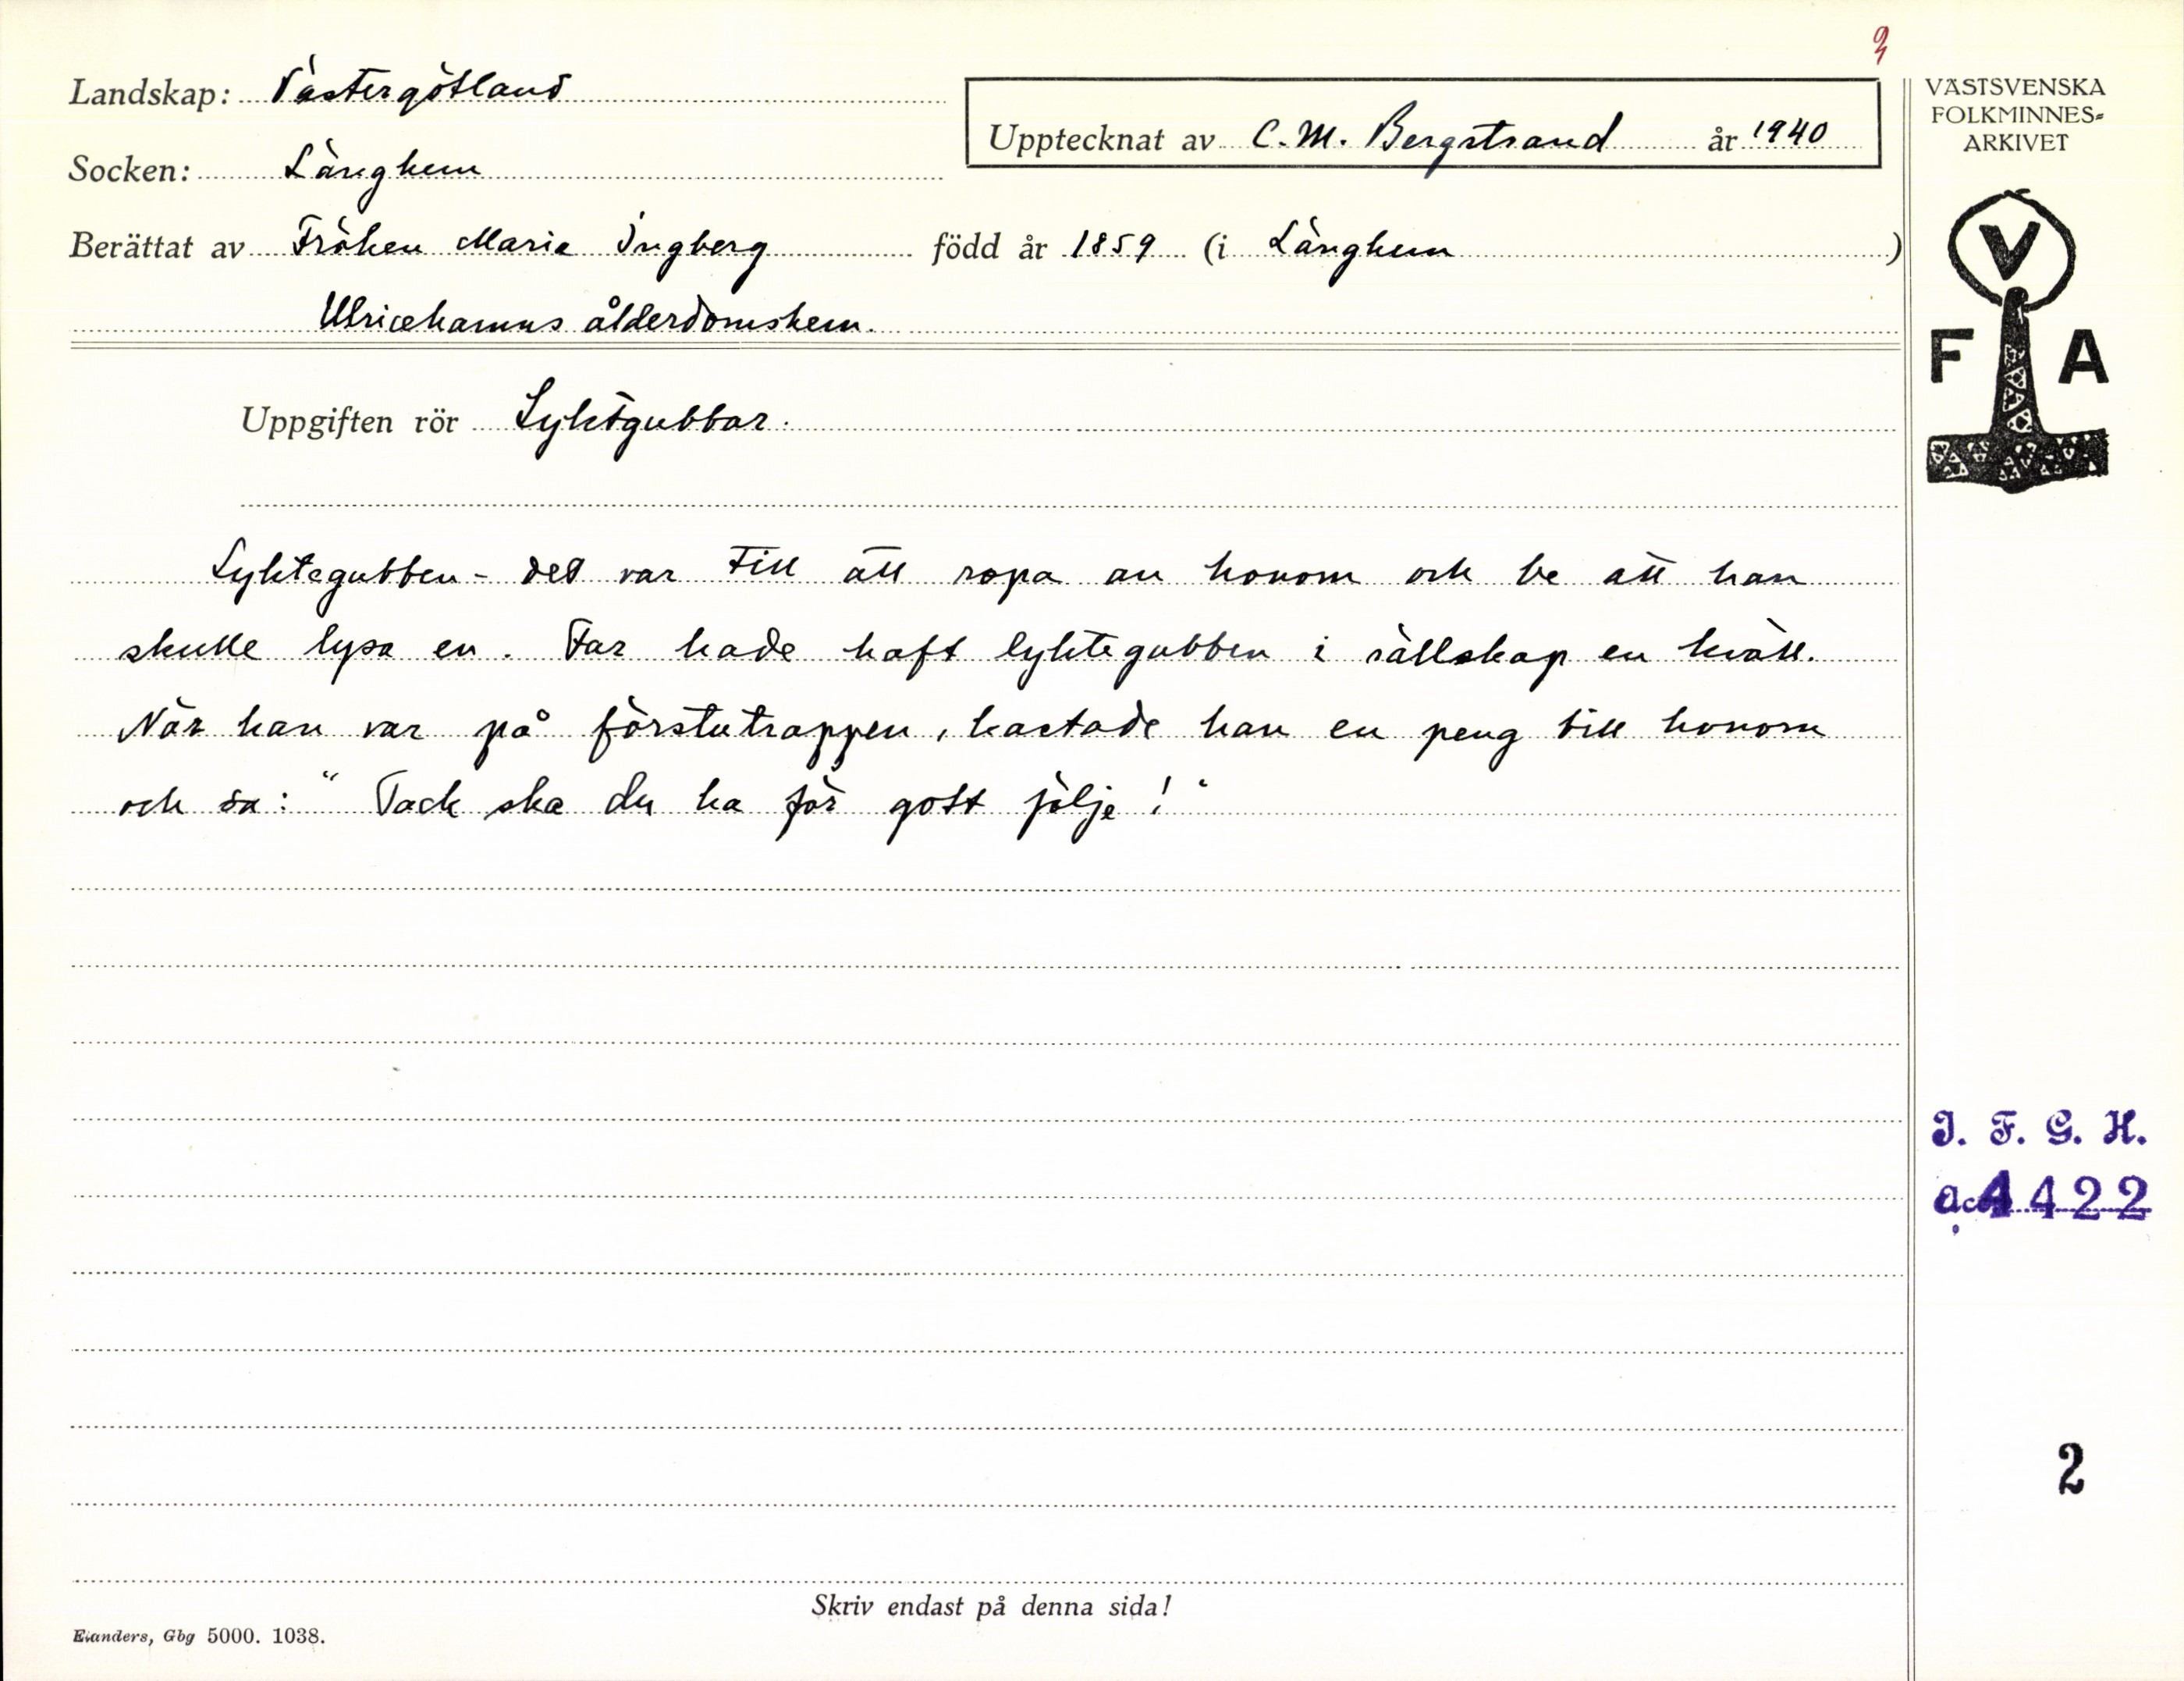 3
Landskap: Västergötland
Upptecknat av C. M. Bergstrand år 1940
Socken: Länghem
Berättat av Fröken Maria Ingberg född år 1859 (i Länghem)
Ulricehamns ålderdomshem.
Uppgiften rör Lyktgubbar.
Lyktegubben - det var till att ropa an honom och be att han
skulle lysa en. Far hade haft lyktegubben i sällskap en kväll.
När han var på förstutrappen, kastade han en peng till honom
och sa: "Tack ska du ha för gott följe!"
Skriv endast på denna sida!
Elanders, Gbg 5000. 1038.
VÄSTSVENSKA
FOLKMINNES-
ARKIVET
V
F A
I. F. G. H.
Acc. 4422
2